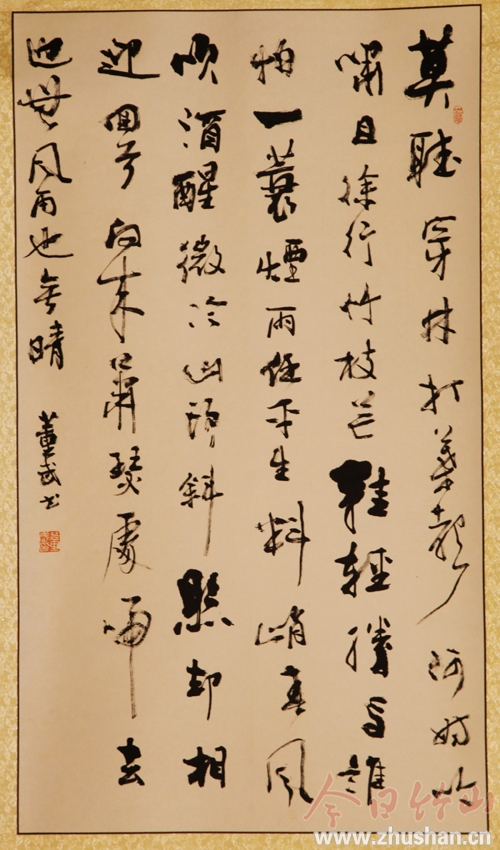 莫聽穿林打葉聲何妨吟
嘯且徐行竹枝芒鞋輕勝馬誰
怕一蓑煙雨任平生料峭春風
吹酒醒微冷山頭斜照却相
迎回首向來蕭瑟處歸去
也無風雨也无晴
董武书
今日竹山
www.zhushan.cn